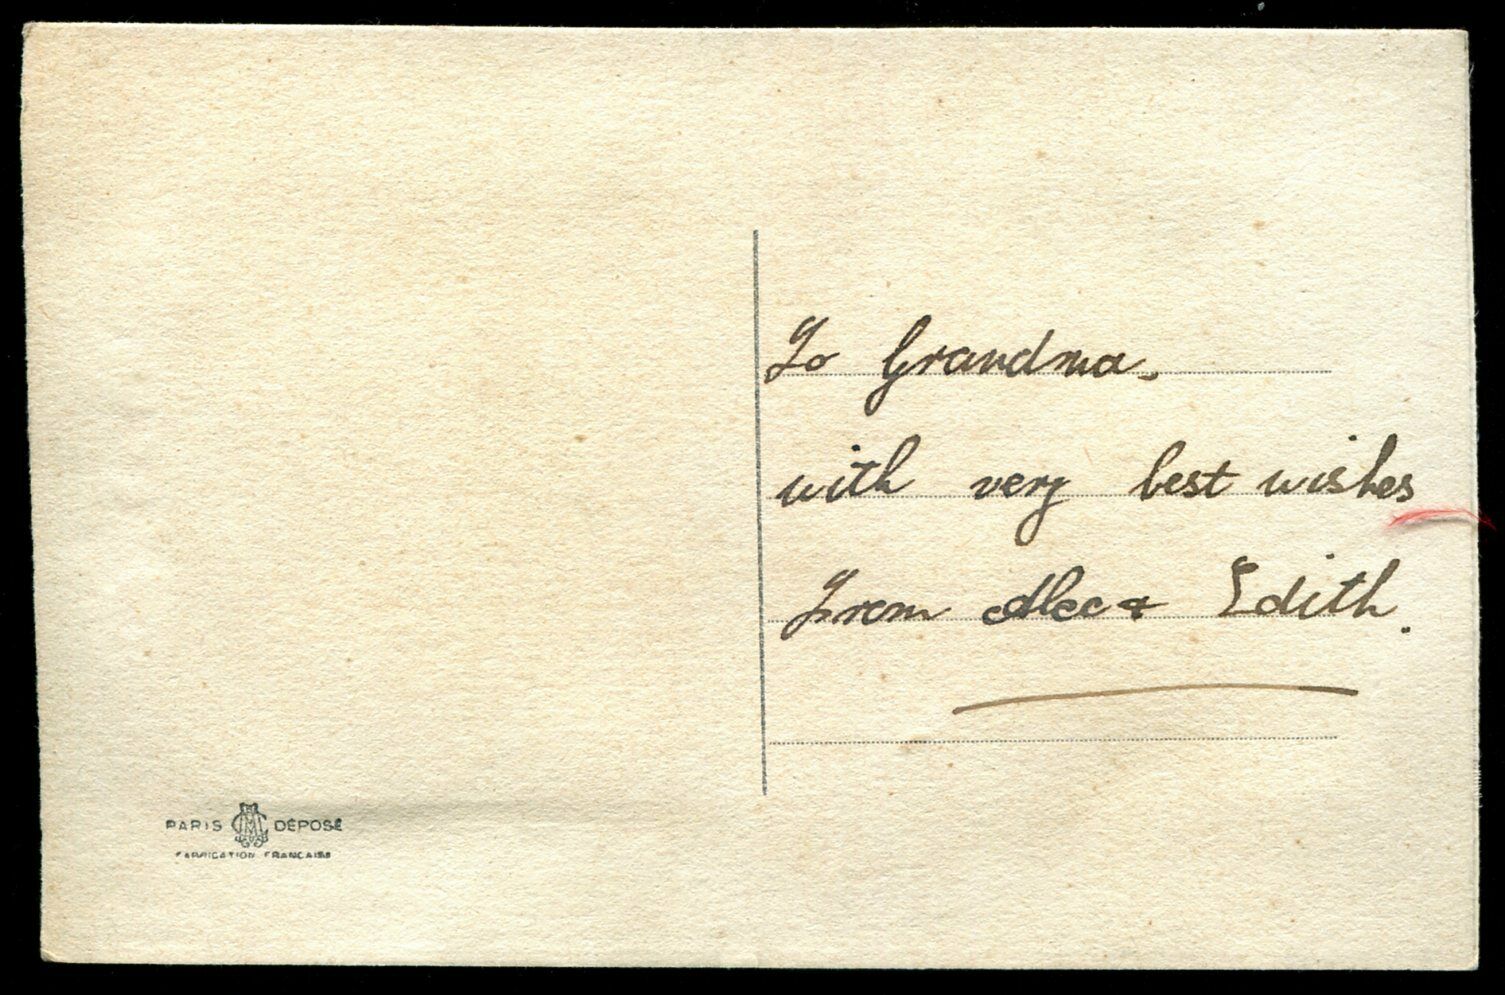 To Grandma.
with very best wishes
From Alec & Edith.
PARIS DÉPOSÉ
FABRICATION FRANÇAISE